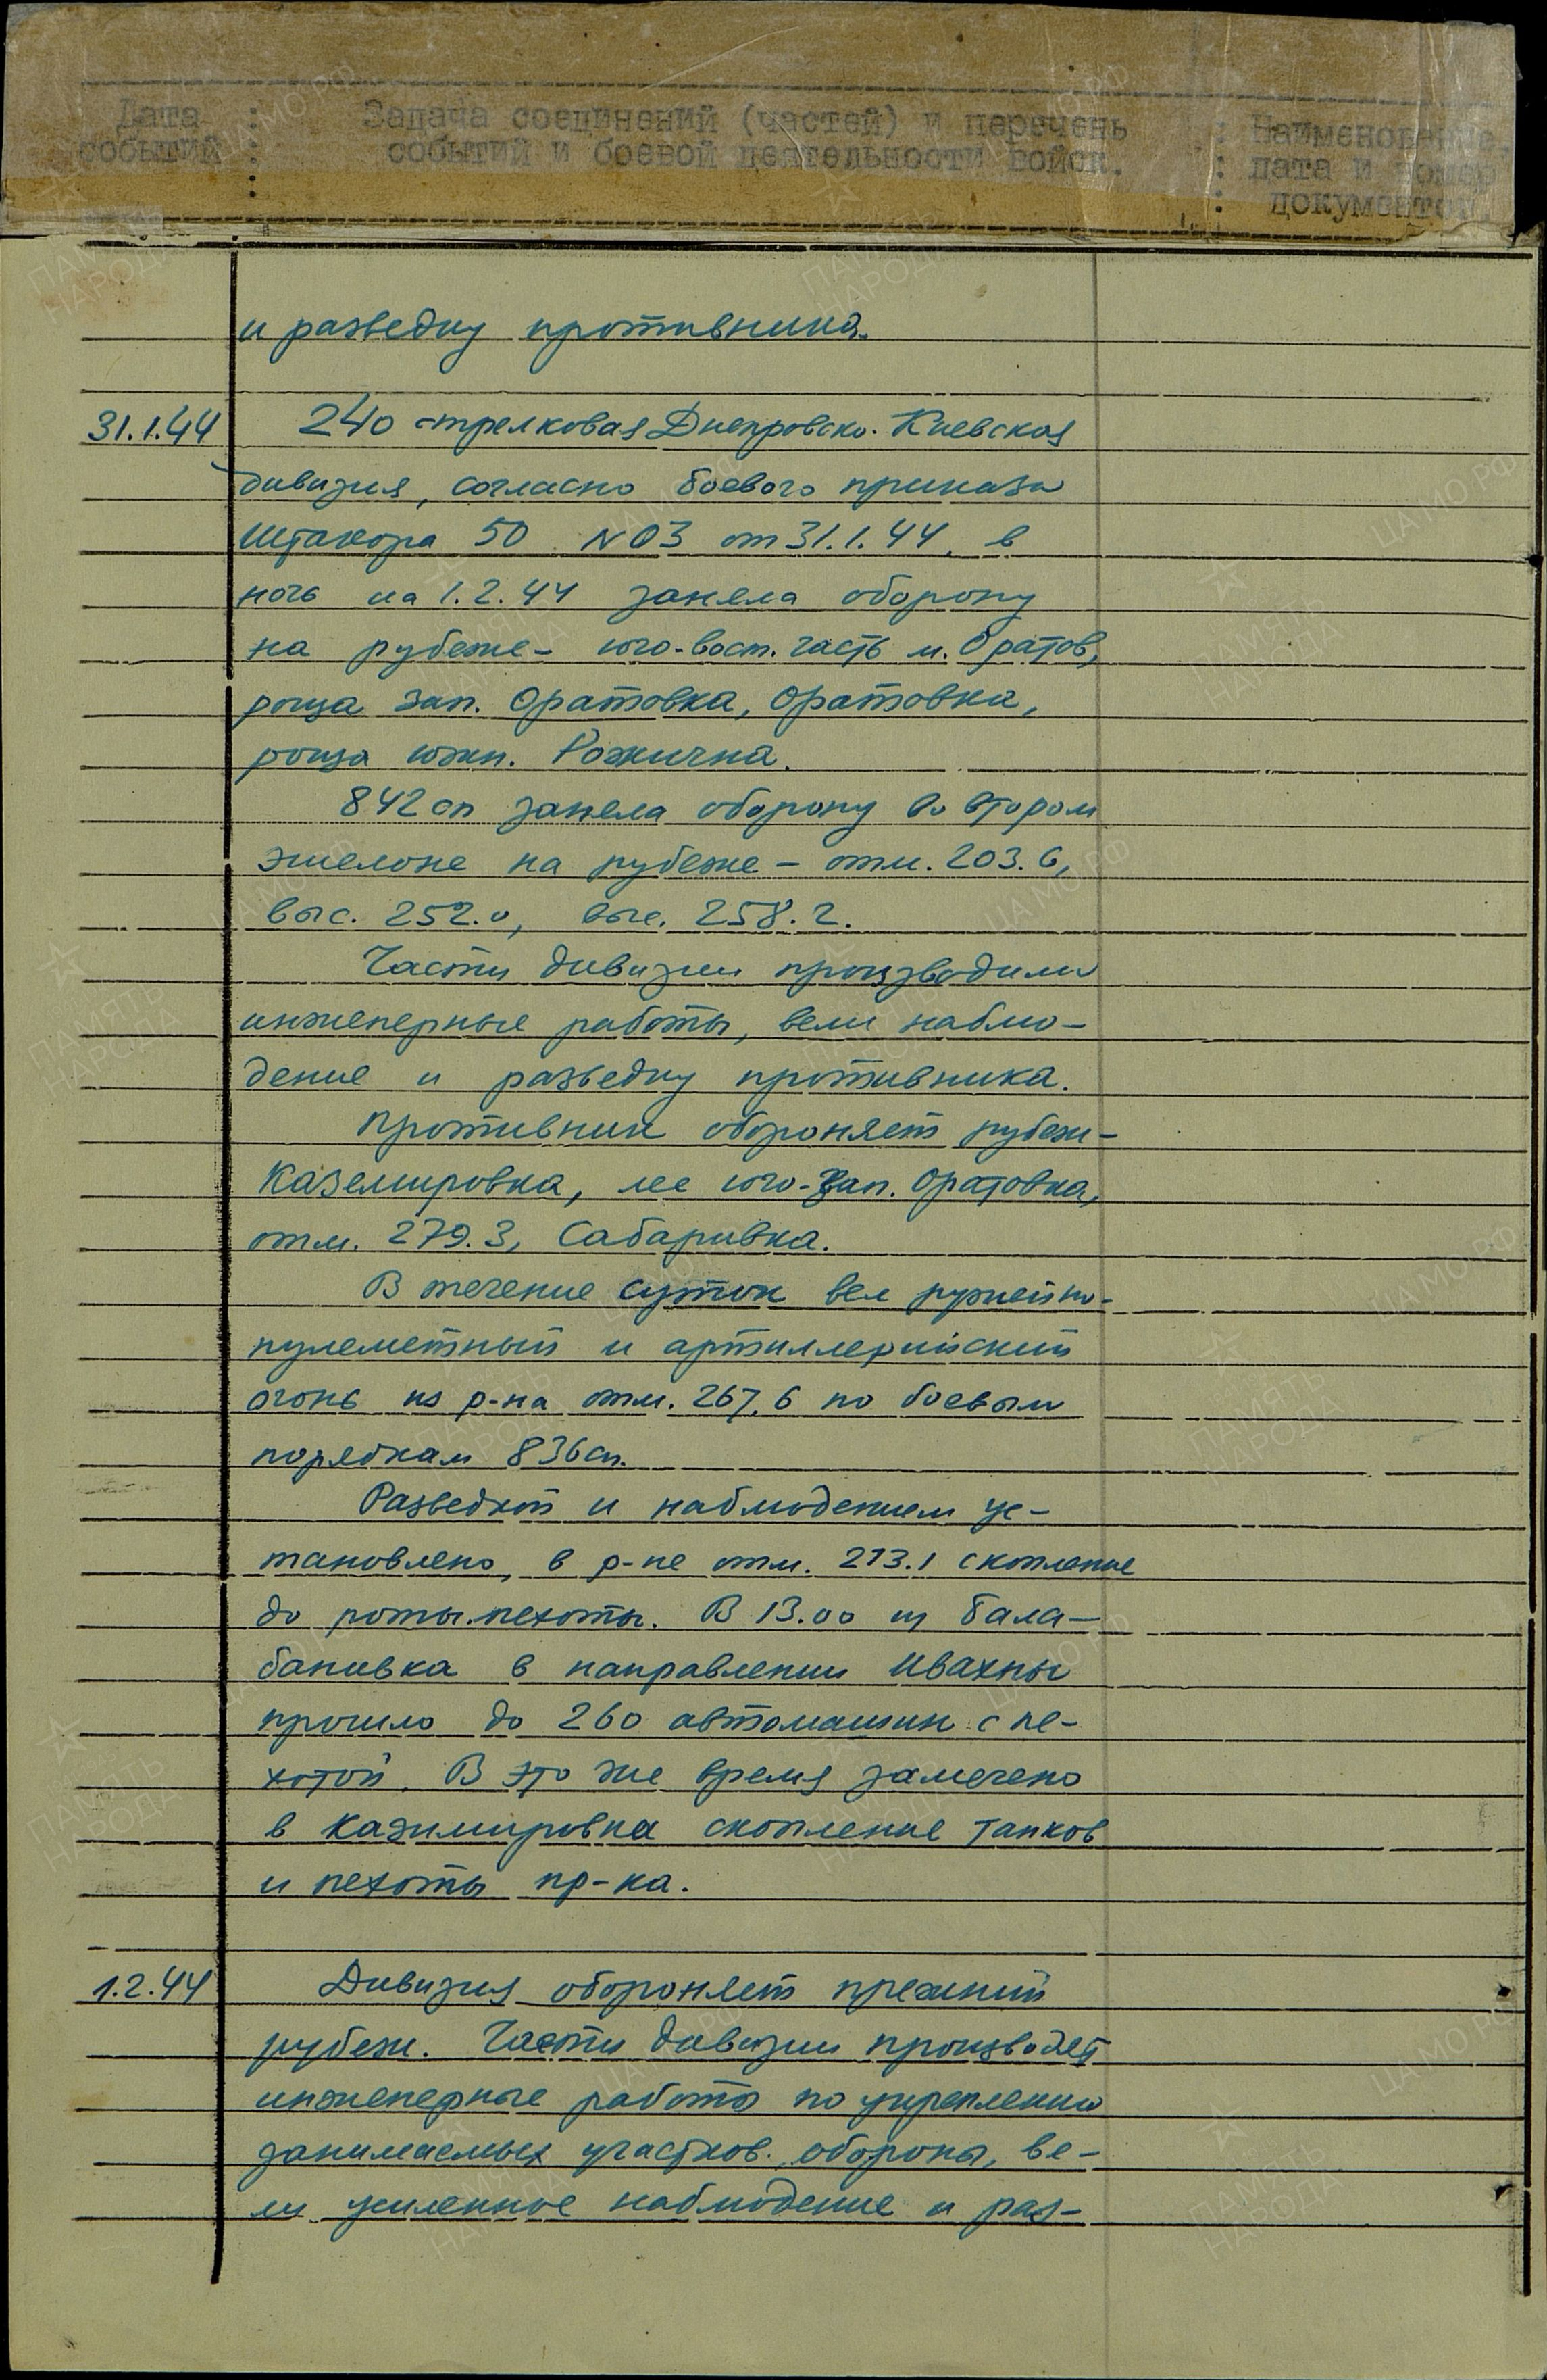 Дата : Задача соединений (частей) и перечень : Наименование,
событий : событий и боевой деятельности войск. : дата и номер
: : документов.
и разведку противника.
31.1.44 240 стрелковая Днепровско-Киевская
дивизия, согласно боевого приказа
Штакора 50 №03 от 31.1.44, в
ночь на 1.2.44 заняла оборону
на рубеже - юго-вост. часть м. Оратов,
роща зап. Оратовка, Оратовка,
роща южн. Рожична.
842 сп заняла оборону во втором
эшелоне на рубеже - отм. 203.6,
выс. 252.0, выс. 258.2.
Части дивизии производили
инженерные работы, вели наблю-
дение и разведку противника.
Противник обороняет рубеж-
Каземировка, лес юго-зап. Оратовка,
отм. 279.3, Сабаривка.
В течение суток вел ружейно-
пулеметный и артиллерийский
огонь из р-на отм. 267.6 по боевым
порядкам 836 сп.
Разведкой и наблюдением ус-
тановлено, в р-не отм. 273.1 скопление
до роты пехоты. В 13.00 из Бала-
бановка в направлении Ивахны
прошло до 260 автомашин с пе-
хотой. В это же время замечено
в Казимировка скопление танков
и пехоты пр-ка.
1.2.44 Дивизия обороняет прежний
рубеж. Части дивизии производят
инженерные работы по укреплению
занимаемых участков обороны, ве-
ли усиленное наблюдение и раз-